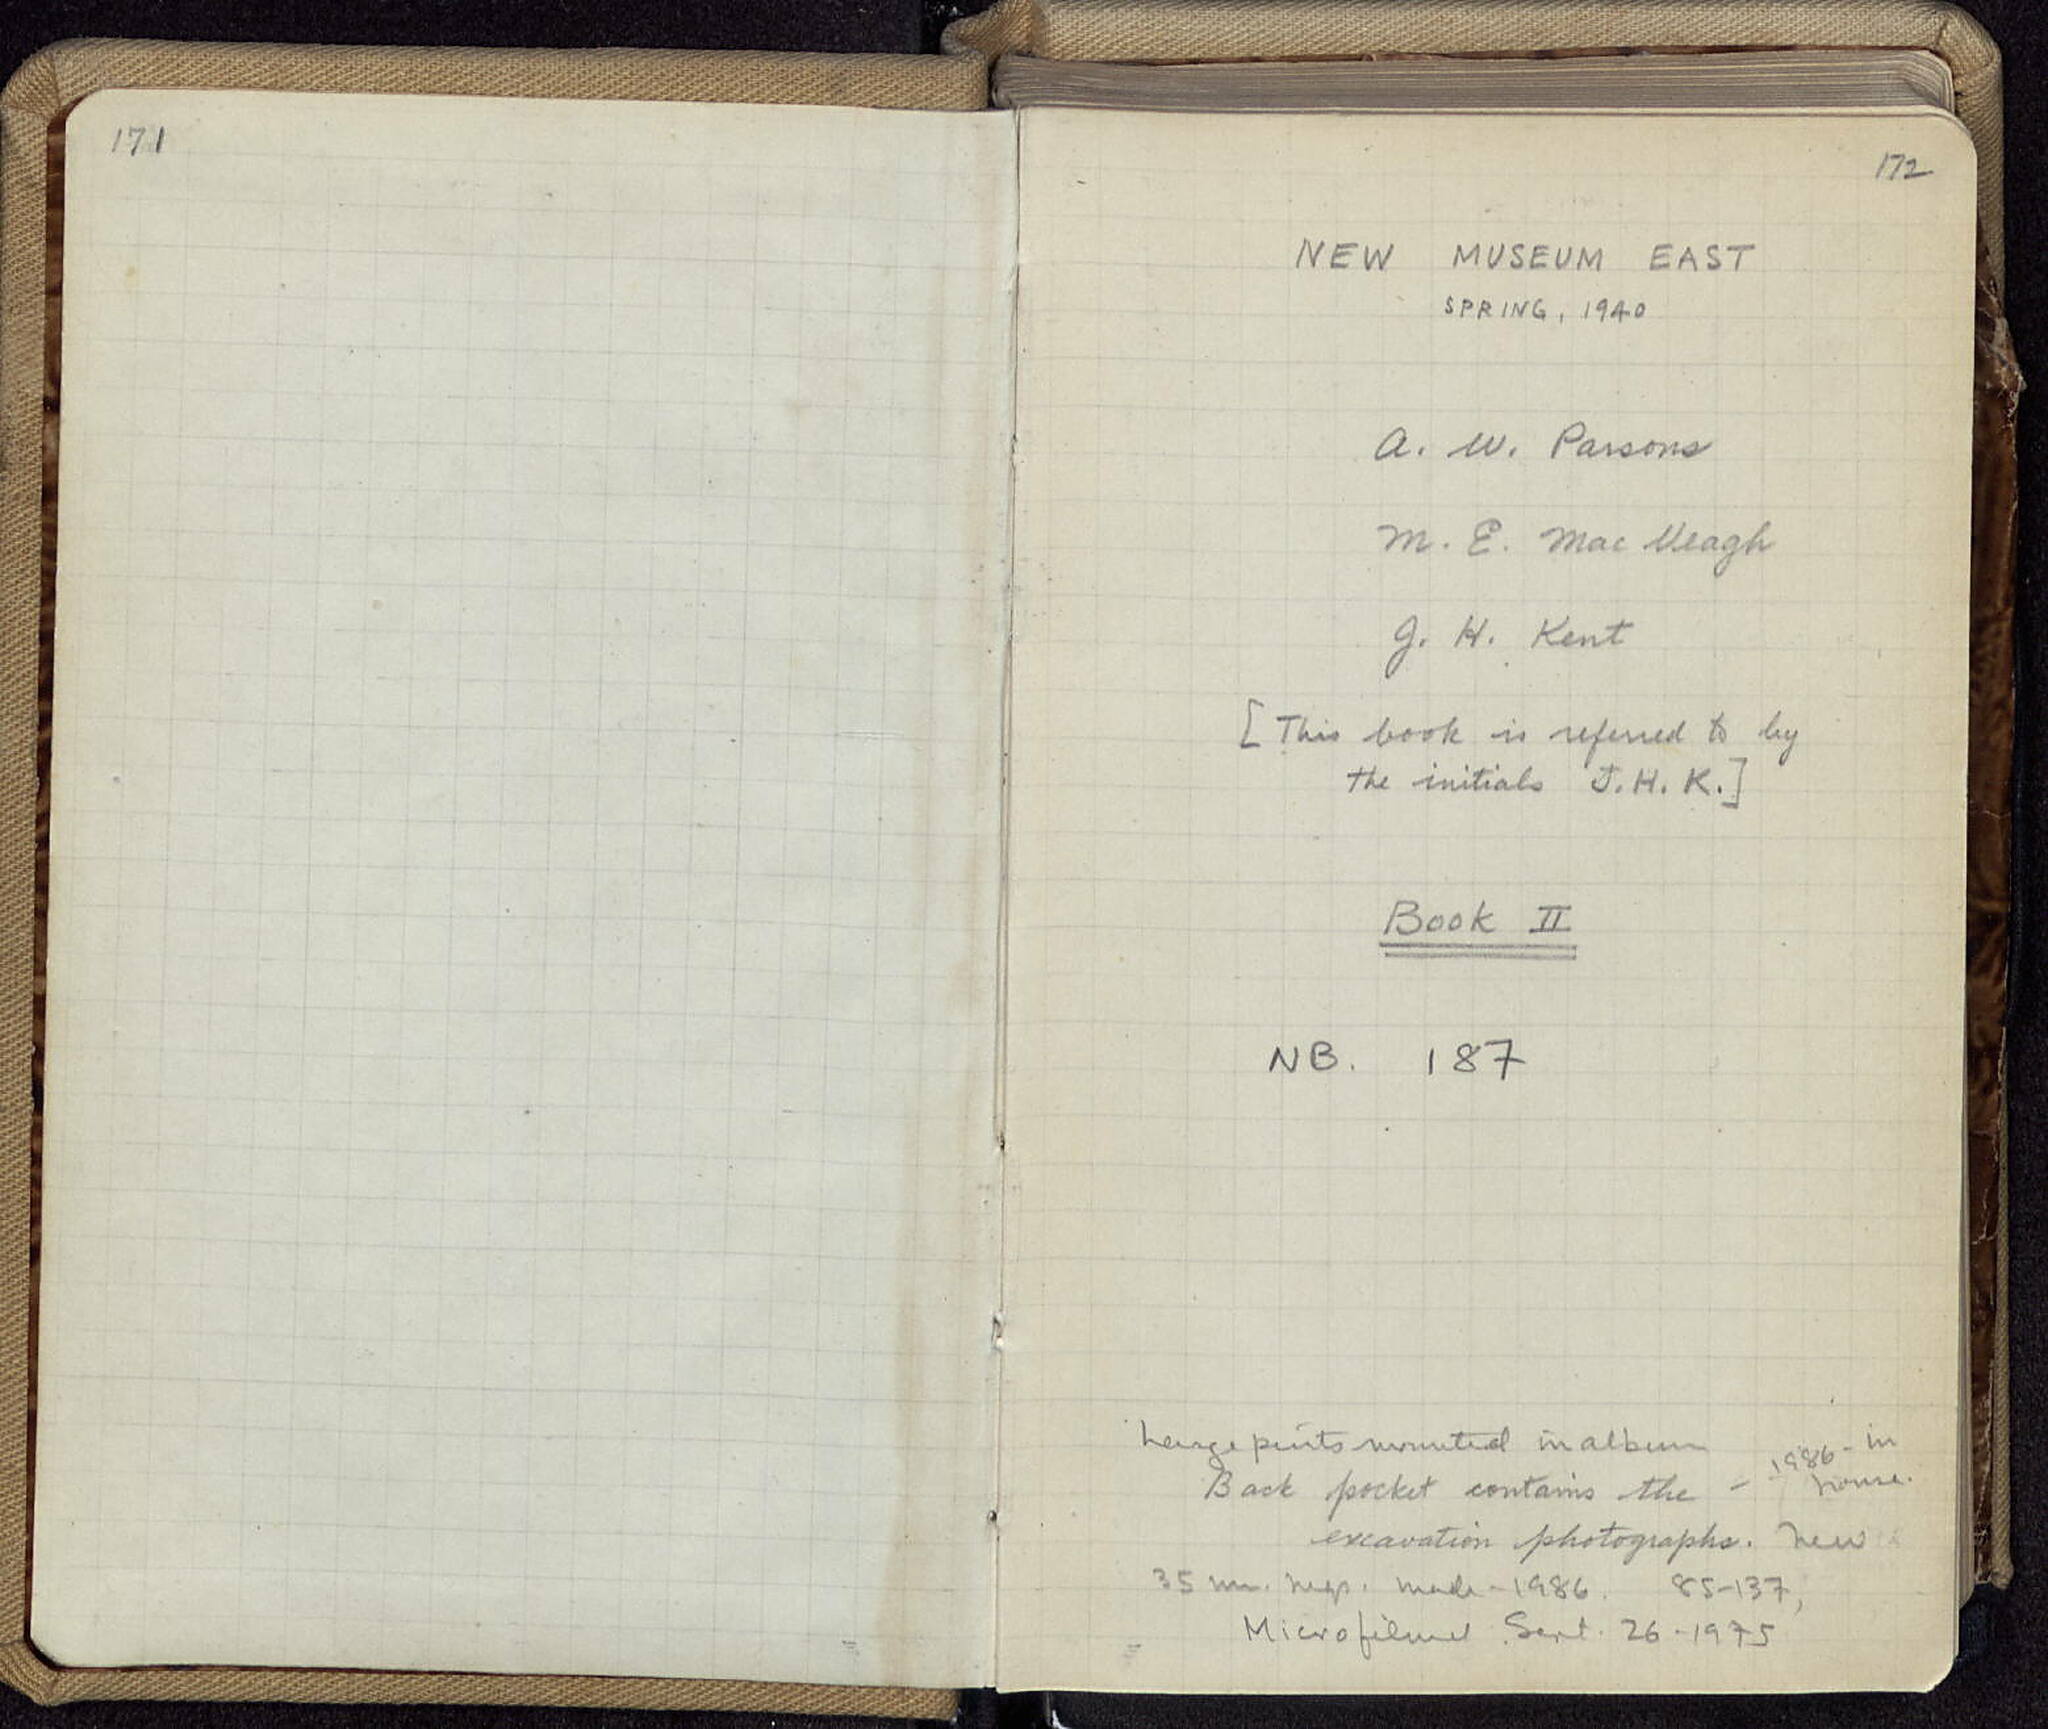 171
172
NEW MUSEUM EAST
SPRING, 1940
A. W. Parsons
M. E. MacVeagh
J. H. Kent
[This book is referred to by
the initials J. H. K.]
Book II
NB. 187
Large prints mounted in album
Back pocket contains the – 1986 – in
house.
excavation photographs. New
35 mm. negs. made – 1986. 85-137,
Microfilmed Sept. 26 - 1975